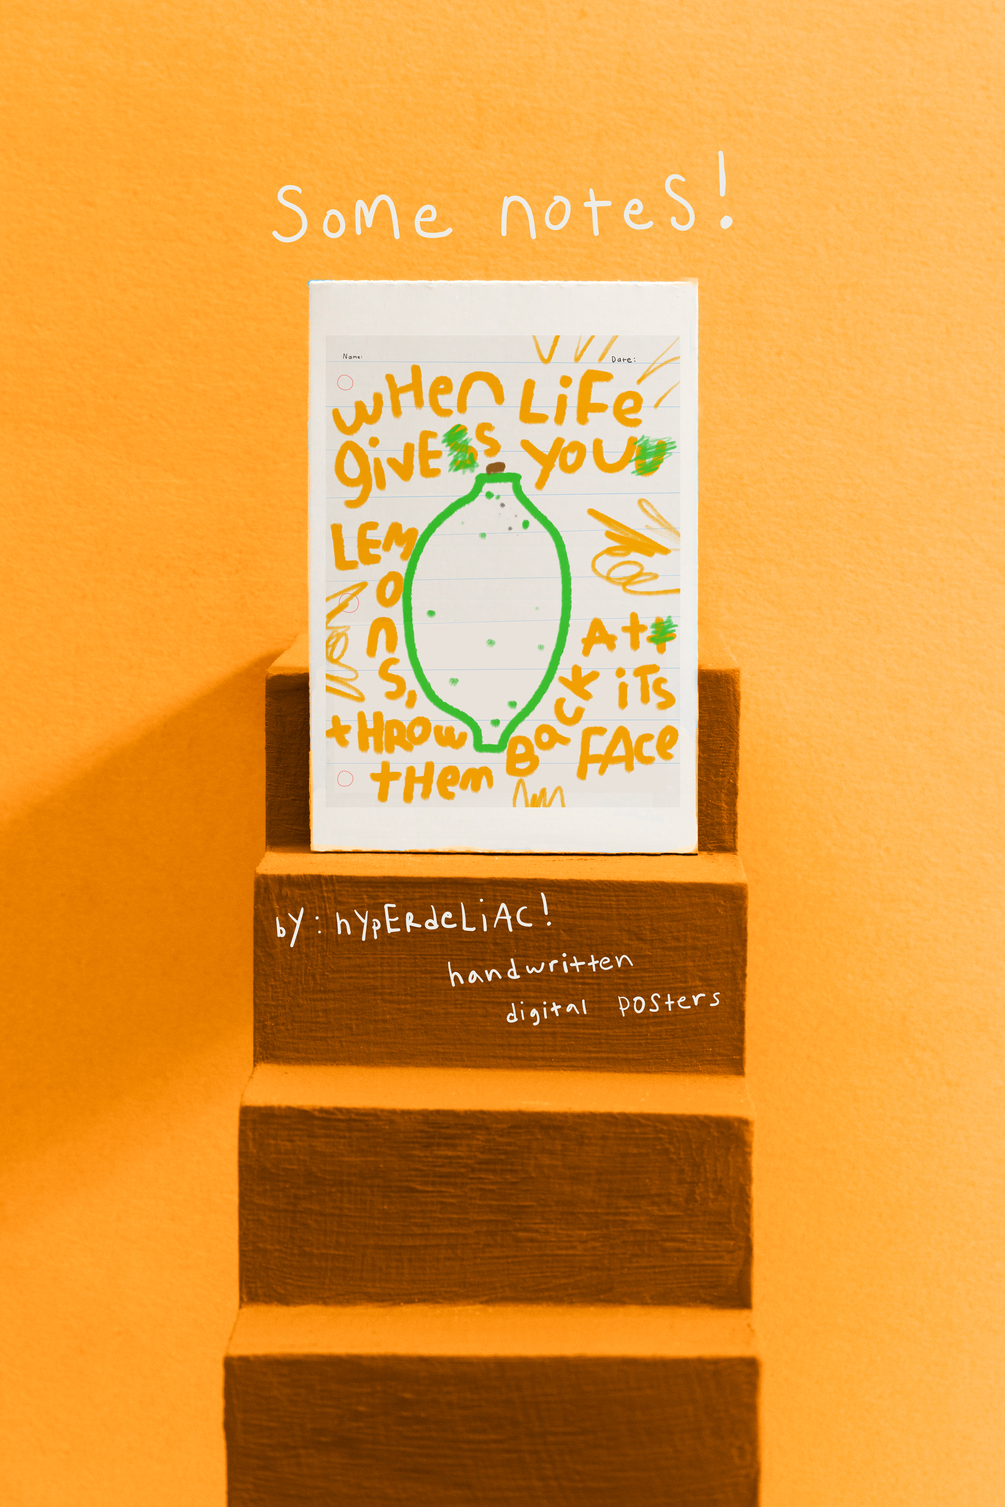 Some noteS!
Name:
Date:
wHen LiFe
givEs you
LEM
o
n
S,
tHRow
tHem
Back
At
iTs
FAce
by: hypERdeLiAC!
handwritten
digital posters